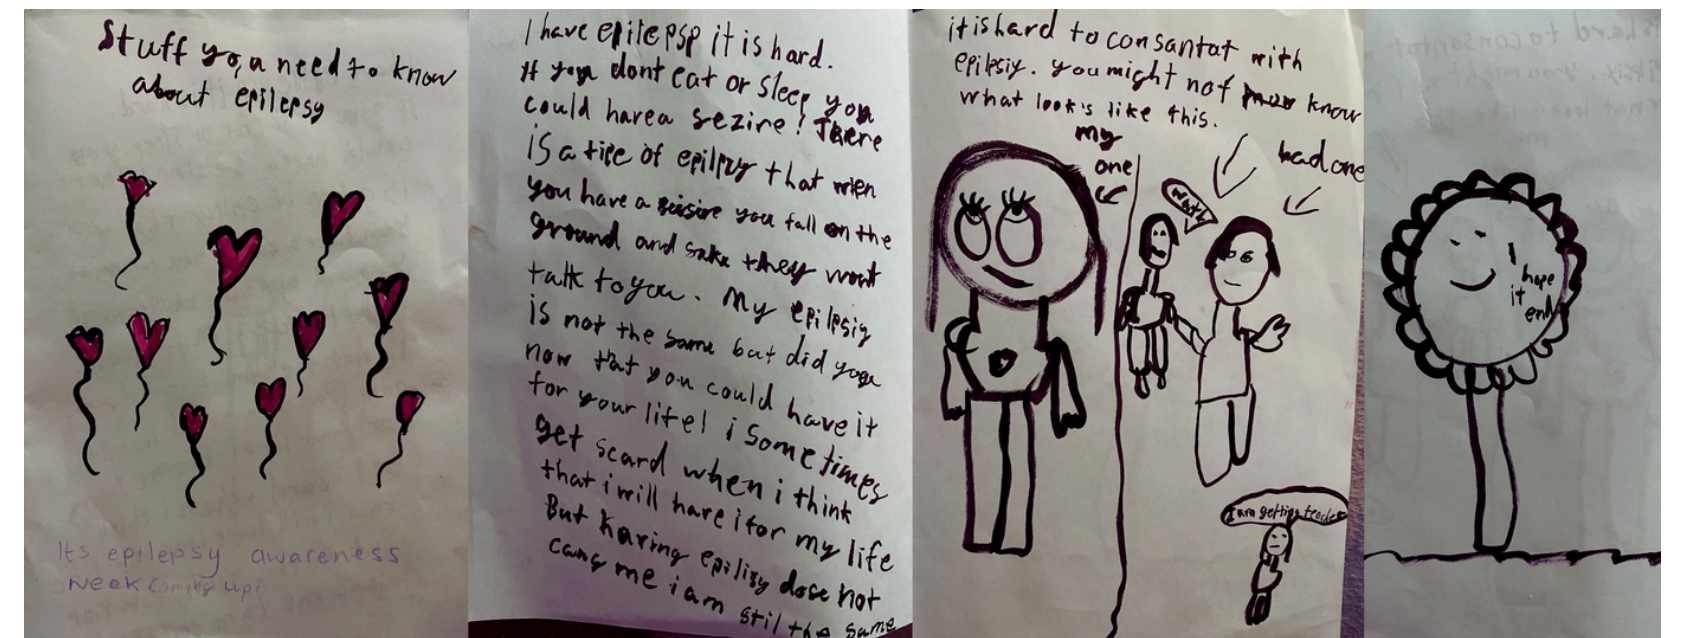 Stuff you need to know
about epilepsy
Its epilepsy awareness
week coming up.
I have epilepsp it is hard.
If you dont eat or sleep you
could have a sezire! There
is a tipe of epilpsy that wen
you have a seisire you fall on the
ground and sake they wont
talk to you. My epilepsiy
is not the same but did you
now that you could have it
for your life! i sometimes
get scard when i think
that i will have it for my life
But having epilisy dose not
cang me i am stil the same
it is hard to consantat with
epilepsiy. you might not know
what look's like this.
my
one
bad one
I am getting
I
hope
it
end